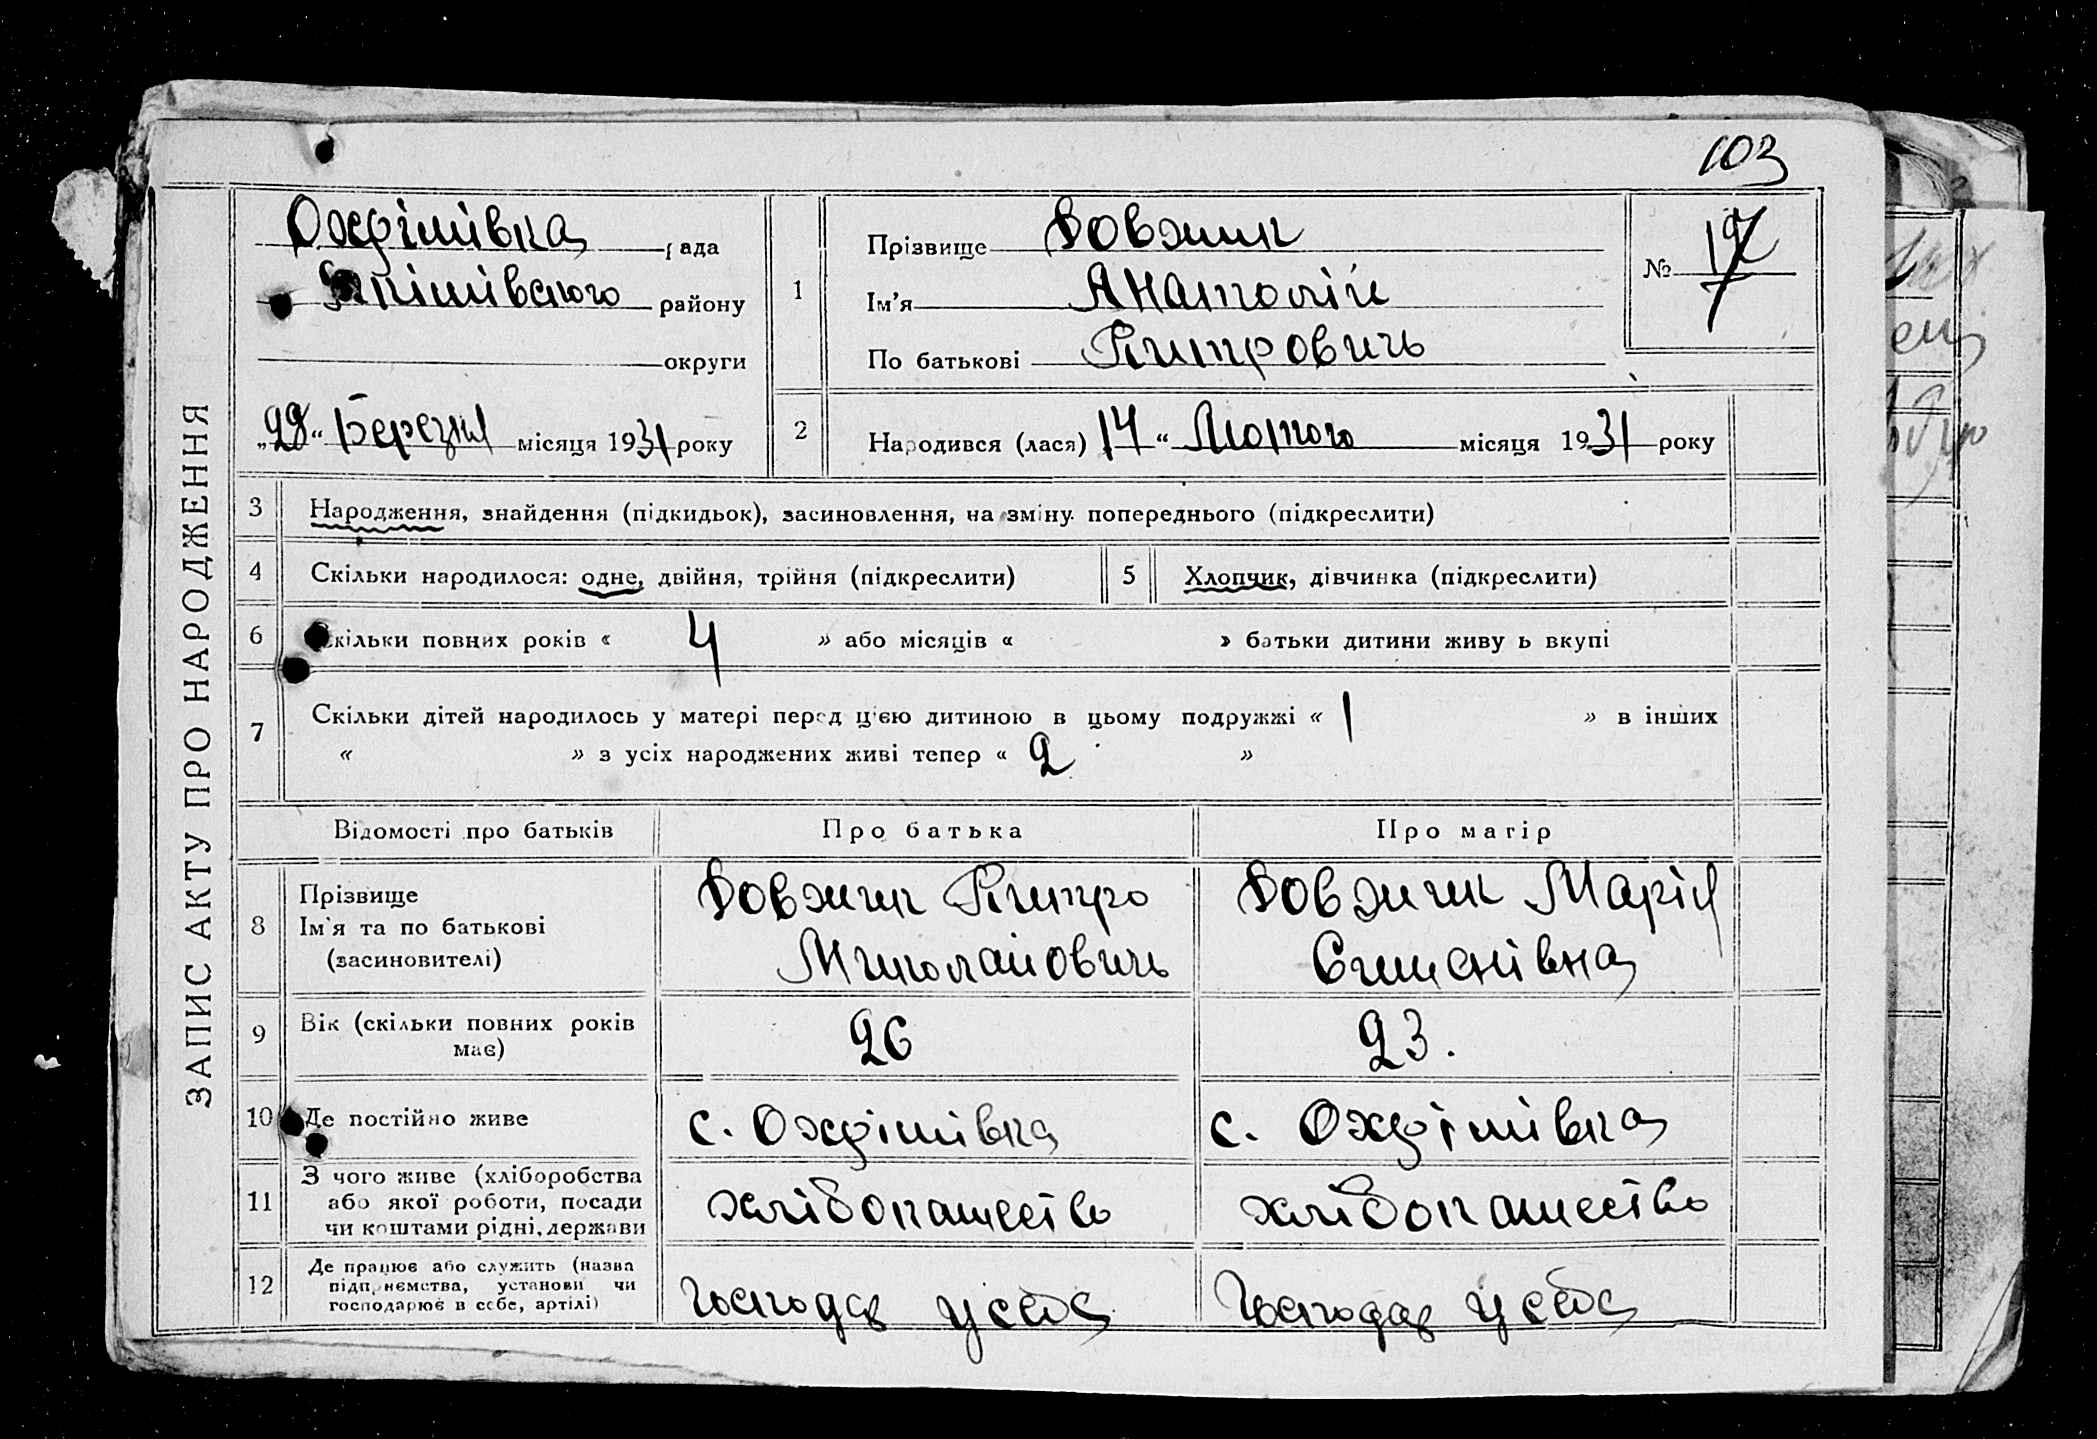 103
Охрімівка рада
Якімівського району
округи
„28“ Березня місяця 1931 року
1
Прізвище Довжик
Ім'я Анатолій
По батькові Кипрович
№ 17
2
Народився (лася) 17 “ Лютого місяця 1931 року
ЗАПИС АКТУ ПРО НАРОДЖЕННЯ
3 Народження, знайдення (підкидьок), засиновлення, на зміну попереднього (підкреслити)
4 Скільки народилося: одне, двійня, трійня (підкреслити)
5 Хлопчик, дівчинка (підкреслити)
6 Скільки повних років « 4 » або місяців « » батьки дитини живу ь вкупі
7 Скільки дітей народилось у матері перед цією дитиною в цьому подружжі « 1 » в інших
« » з усіх народжених живі тепер « 2 »
Відомості про батьків Про батька Про матір
8 Прізвище
Ім'я та по батькові
(засиновителі)
Довжик Кипро
Миколайович
Довжик Марія
Єлисеївна
9 Вік (скільки повних років
має)
26
23.
10 Де постійно живе
с. Охрімівка
с. Охрімівка
11 З чого живе (хліборобства
або якої роботи, посади
чи коштами рідні, держави
хлібопашество
хлібопашество
12 Де працює або служить (назва
підприємства, установи чи
господарює в себе, артілі)
Господар у себе
Господар у себе